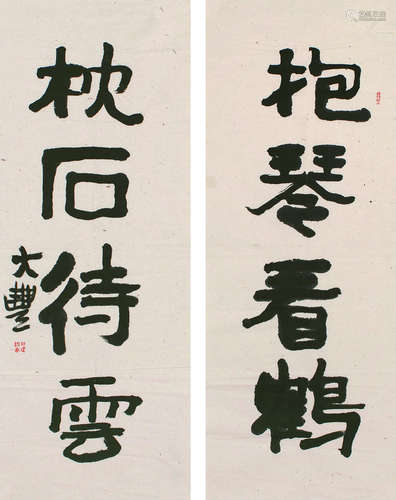 抱琴看鶴
枕石待雲
大豐